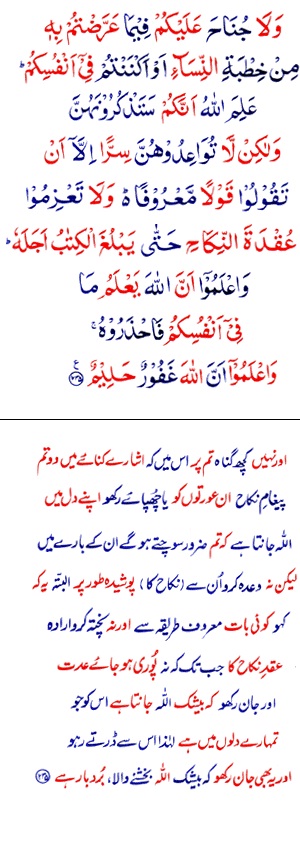 وَلَا جُنَاحَ عَلَيْكُمْ فِيْمَا عَرَّضْتُمْ بِهٖ
مِنْ خِطْبَةِ النِّسَآءِ اَوْ اَكْنَنْتُمْ فِيْٓ اَنْفُسِكُمْ ؕ
عَلِمَ اللّٰهُ اَنَّكُمْ سَتَذْكُرُوْنَهُنَّ
وَلٰكِنْ لَّا تُوَاعِدُوْهُنَّ سِرًّا اِلَّآ اَنْ
تَقُوْلُوْا قَوْلًا مَّعْرُوْفًا ؕ وَلَا تَعْزِمُوْا
عُقْدَةَ النِّكَاحِ حَتّٰى يَبْلُغَ الْكِتٰبُ اَجَلَهٗ ؕ
وَاعْلَمُوْٓا اَنَّ اللّٰهَ يَعْلَمُ مَا
فِيْٓ اَنْفُسِكُمْ فَاحْذَرُوْهُ ۚ
وَاعْلَمُوْٓا اَنَّ اللّٰهَ غَفُوْرٌ حَلِيْمٌ ۧ ﴿۲۳۵﴾
اور نہیں کچھ گناہ تم پر اس میں کہ اشارے کنائے میں دو تم
پیغامِ نکاح ان عورتوں کو یا چھپائے رکھو اپنے دل میں
اللہ جانتا ہے کہ تم ضرور سوچتے ہو گے ان کے بارے میں
لیکن نہ وعدہ کرو اُن سے (نکاح کا) پوشیدہ طور پر البتّہ یہ کہ
کہو کوئی بات معروف طریقہ سے اور نہ پختہ کرو ارادہ
عقدِ نکاح کا جب تک کہ نہ پُوری ہو جائے عدت
اور جان رکھو کہ بیشک اللہ جانتا ہے اس کو جو
تمہارے دلوں میں ہے لہٰذا اس سے ڈرتے رہو
اور یہ بھی جان رکھو کہ بیشک اللہ بخشنے والا، بُردبار ہے ﴿۲۳۵﴾